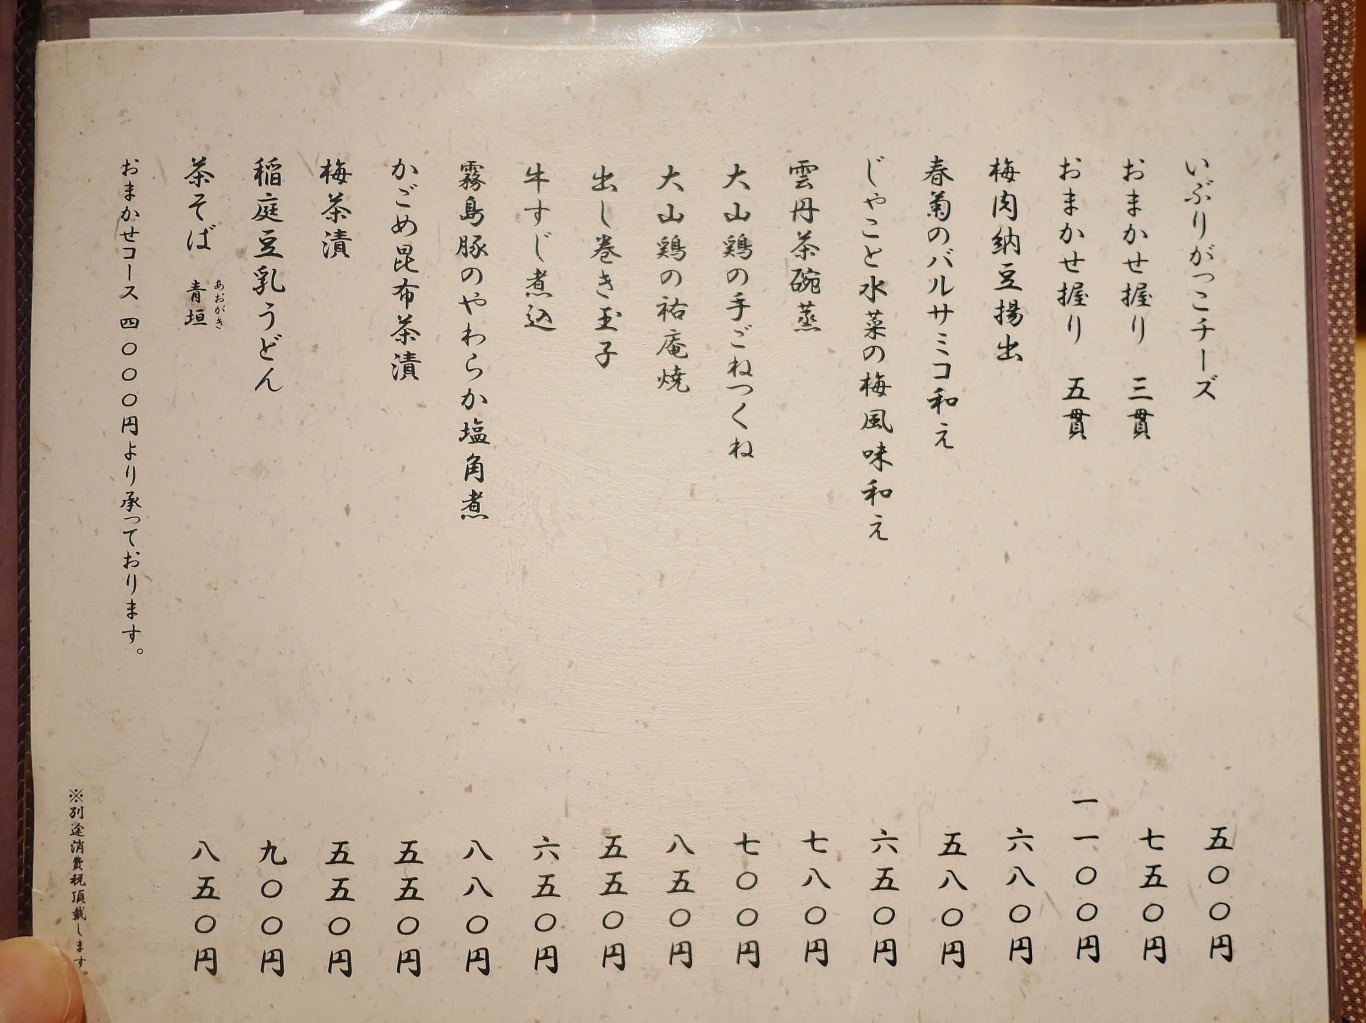 いぶりがっこチーズ 五〇〇円
おまかせ握り 三貫 七五〇円
おまかせ握り 五貫 一一〇〇円
梅肉納豆揚出 六八〇円
春菊のバルサミコ和え 五八〇円
じゃこと水菜の梅風味和え 六五〇円
雲丹茶碗蒸 七八〇円
大山鶏の手ごねつくね 七〇〇円
大山鶏の祐庵焼 八五〇円
出し巻き玉子 五五〇円
牛すじ煮込 六五〇円
霧島豚のやわらか塩角煮 八八〇円
かごめ昆布茶漬 五五〇円
梅茶漬 五五〇円
稲庭豆乳うどん 九〇〇円
あおがき
茶そば 青垣 八五〇円
おまかせコース 四〇〇〇円より承っております。
※別途消費税頂戴します。